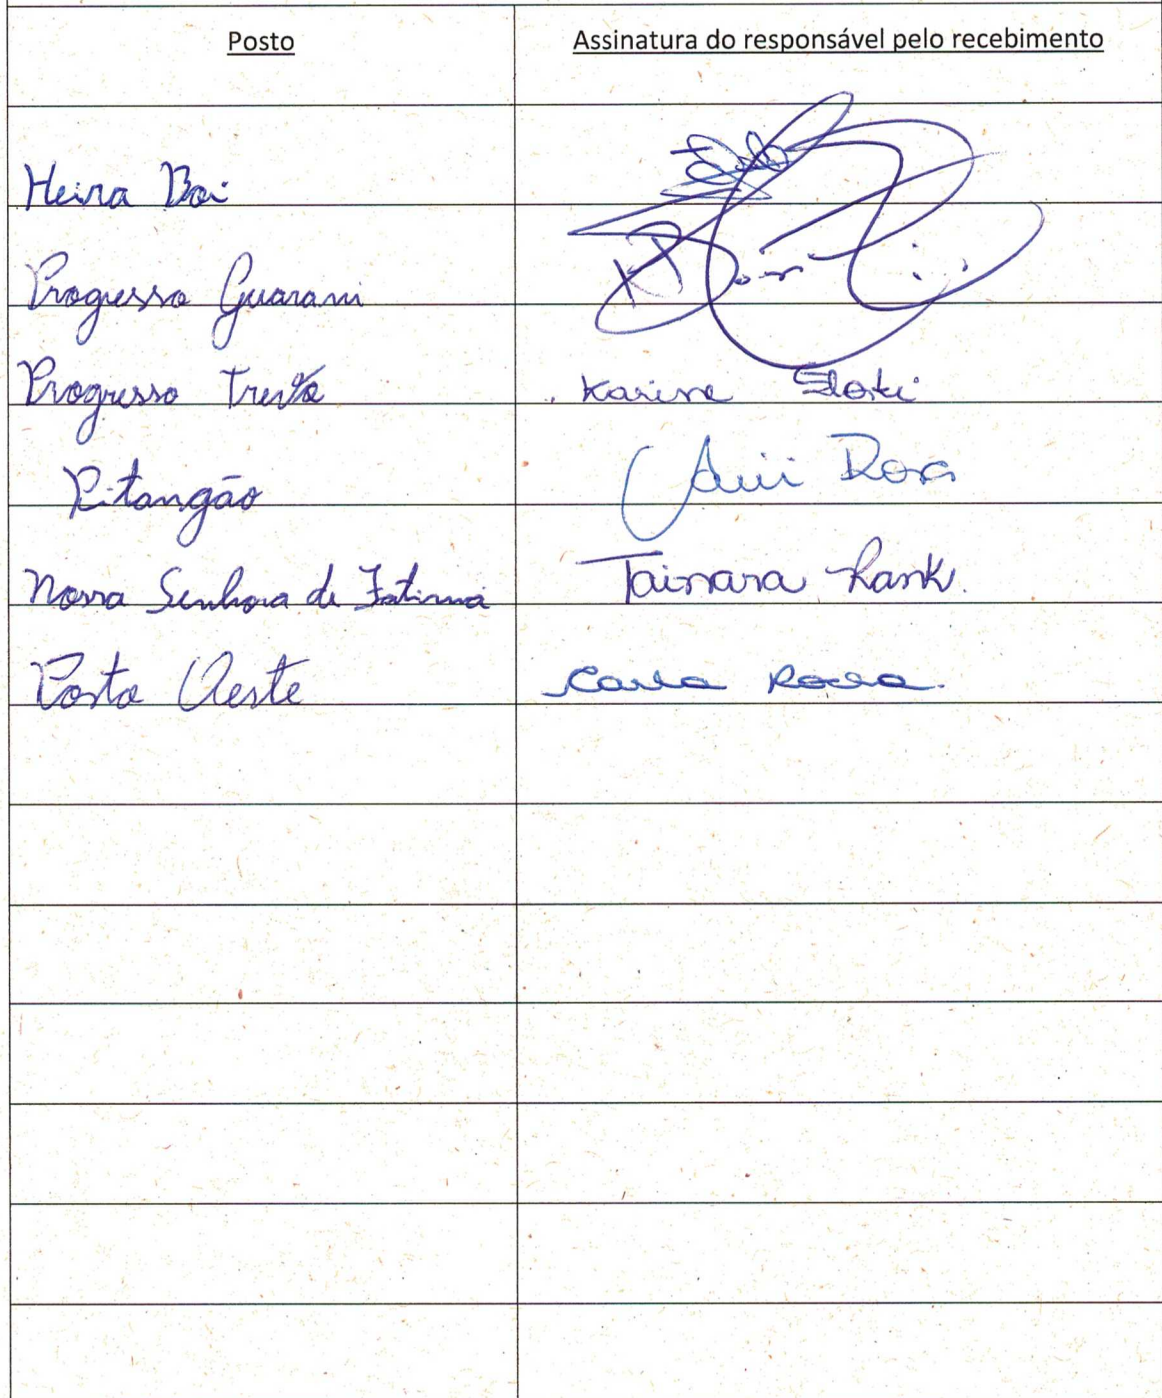 Posto Assinatura do responsável pelo recebimento
Heira Boi
Progresso Guarani
Progresso Trevo Karine
Pitangão Rosa
Nossa Senhora de Fatima Tainara Rank.
Posto Oeste Carla Rocha.